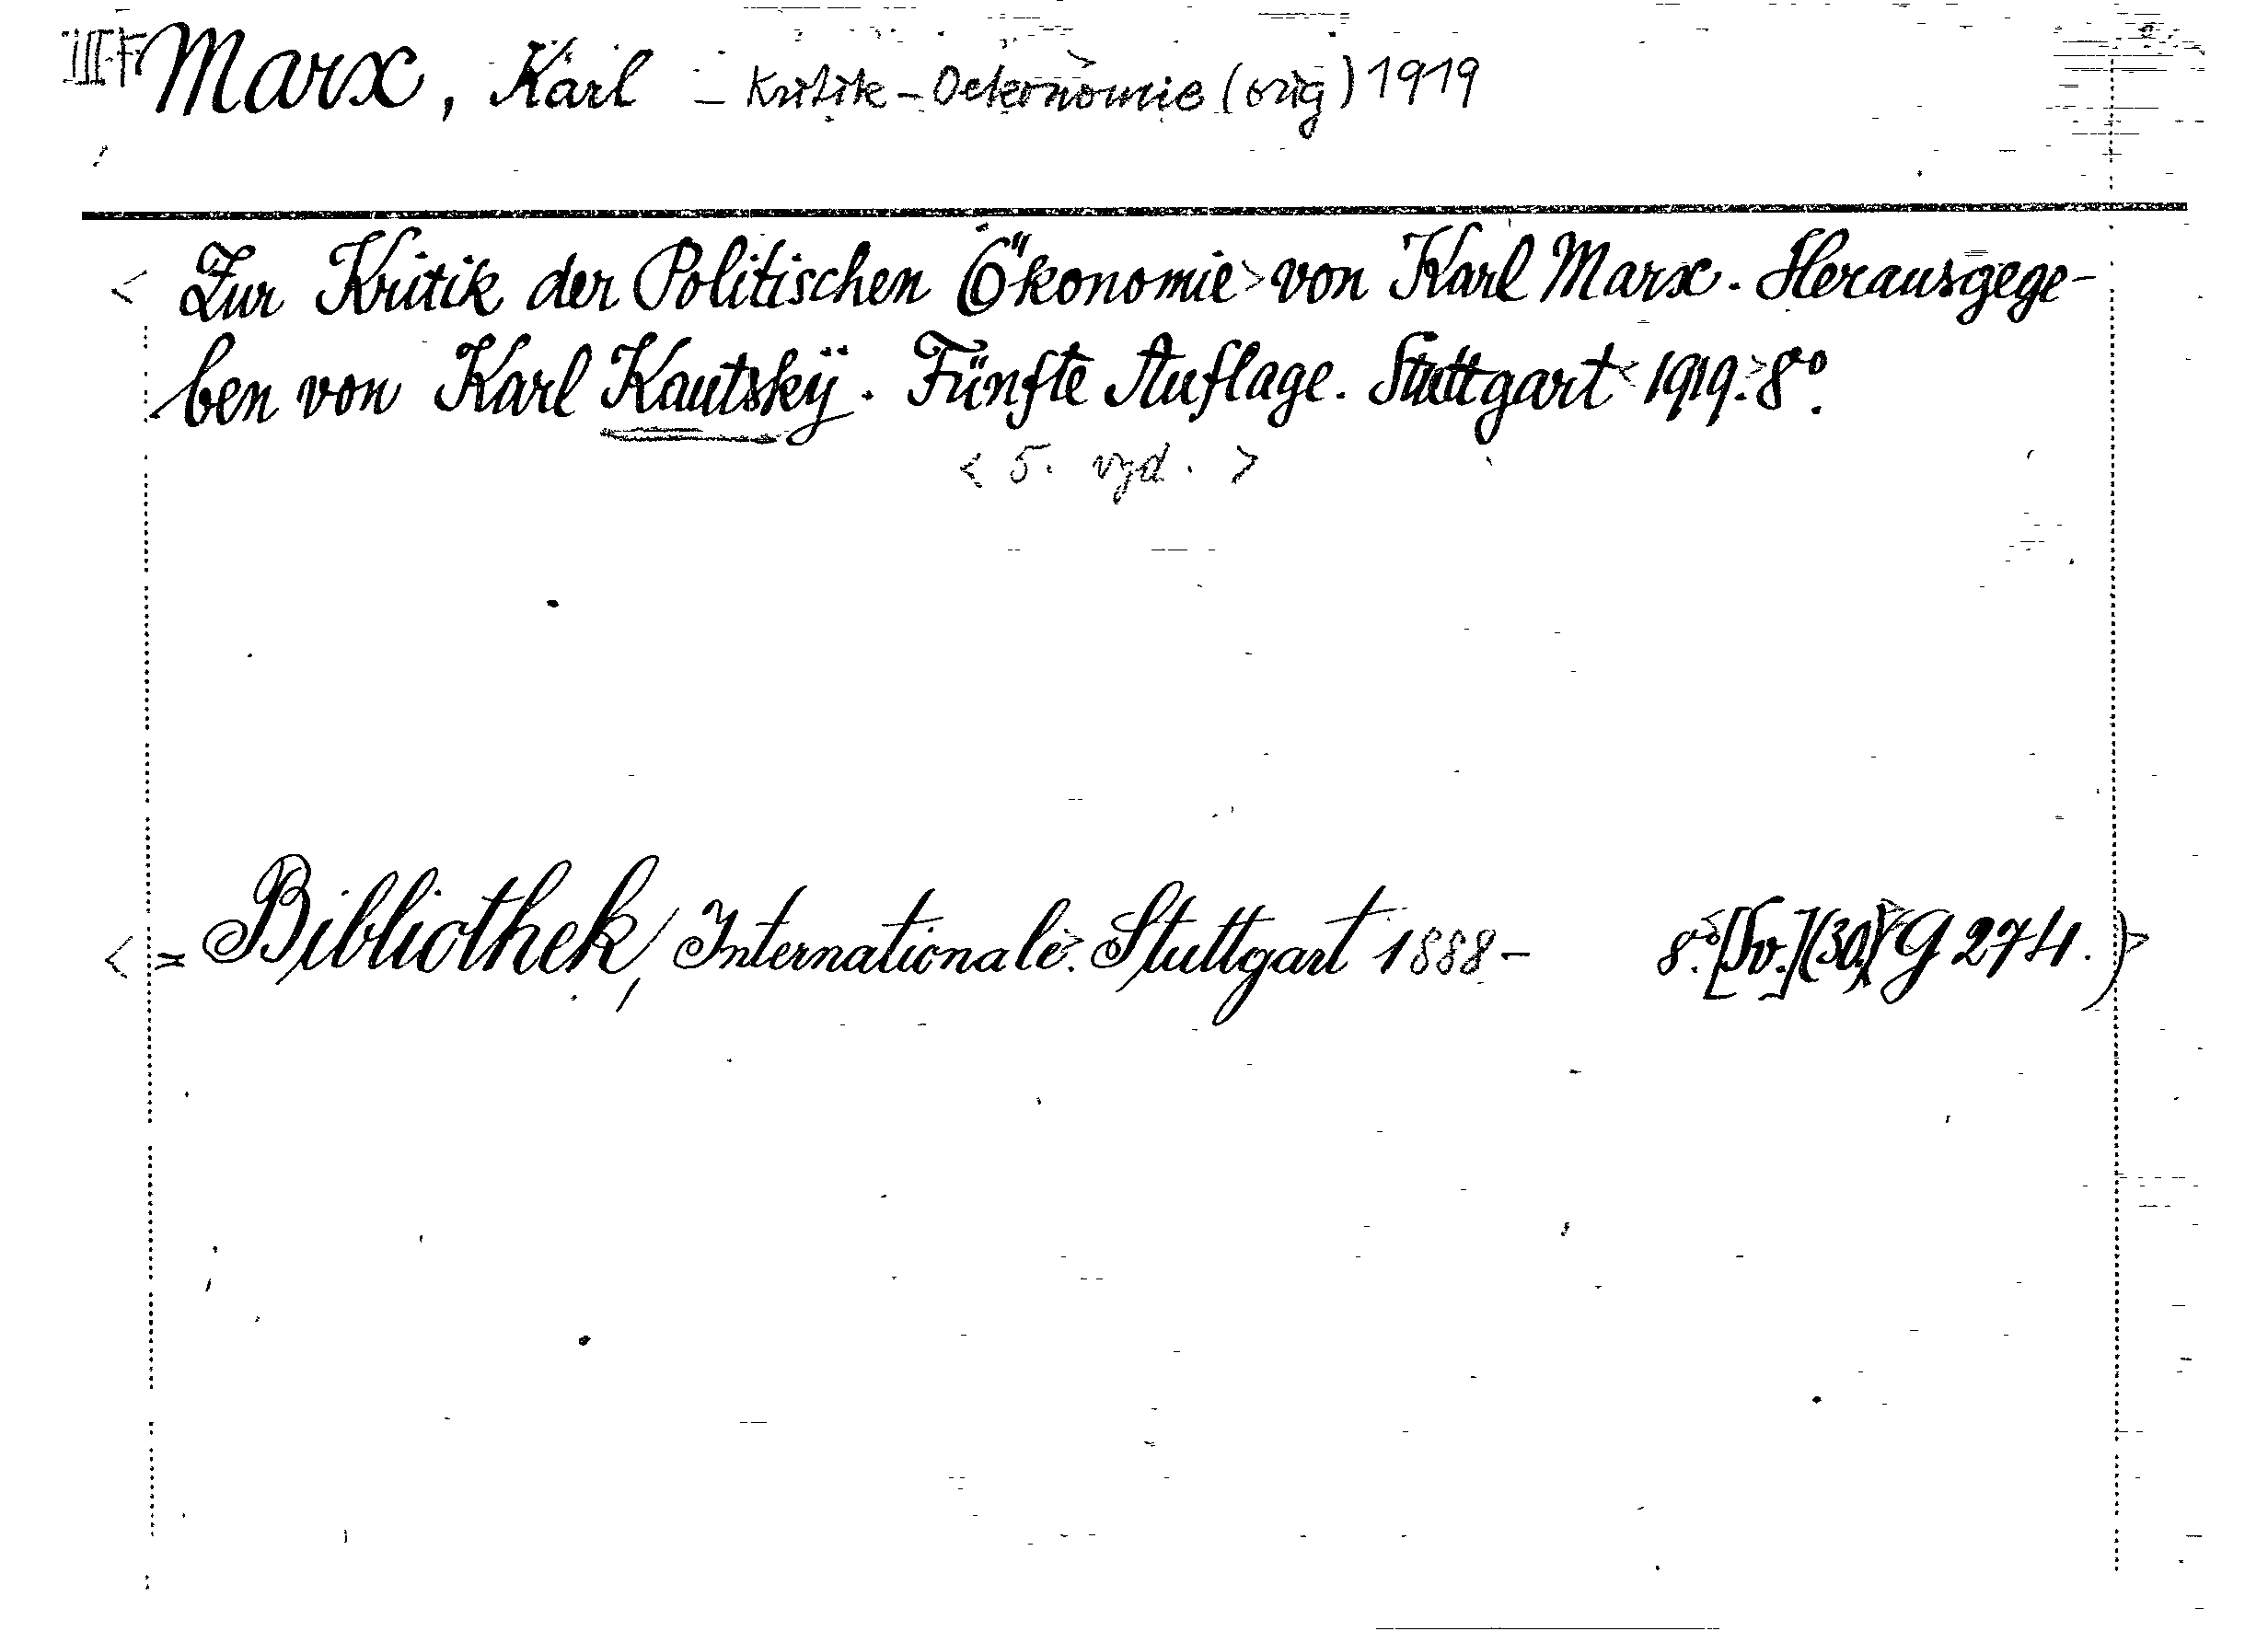 III F Marx, Karl – Kritik – Oekonomie (orig) 1919
< Zur Kritik der Politischen Ökonomie> von Karl Marx. Herausgege-
ben von Karl Kautskÿ. Fünfte Auflage. Stuttgart <1919.> 8°.
< 5. vgd. >
< = Bibliothek, Internationale. Stuttgart 1888 – 8°. (30.) G 274.)>